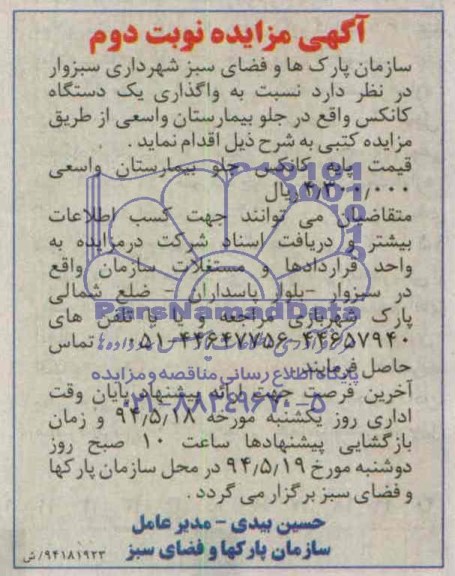 آگهی مزایده نوبت دوم
سازمان پارک ها و فضای سبز شهرداری سبزوار
در نظر دارد نسبت به واگذاری یک دستگاه
کانکس واقع در جلو بیمارستان واسعی از طریق
مزایده کتبی به شرح ذیل اقدام نماید .
قیمت پایه کانکس جلو بیمارستان واسعی
۴/۳۰۰/۰۰۰ ریال
متقاضیان می توانند جهت کسب اطلاعات
بیشتر و دریافت اسناد شرکت درمزایده به
واحد قراردادها و مستغلات سازمان واقع
در سبزوار -بلوار پاسداران - ضلع شمالی
پارک شهربازی مراجعه و یا با تلفن های
۰۵۱-۴۴۶۴۷۷۵۶-۴۴۶۵۷۹۴۰ تماس
حاصل فرمایند.
آخرین فرصت جهت ارائه پیشنهاد پایان وقت
اداری روز یکشنبه مورخه ۹۴/۵/۱۸ و زمان
بازگشایی پیشنهادها ساعت ۱۰ صبح روز
دوشنبه مورخ ۹۴/۵/۱۹ در محل سازمان پارکها
و فضای سبز برگزار می گردد .
حسین بیدی - مدیر عامل
سازمان پارکها و فضای سبز
۹۴۱۸۱۹۲۳/ش
ParsNamadData
پایگاه اطلاع رسانی مناقصه و مزایده
۰۲۱-۸۸۳۴۹۶۷۰-۵